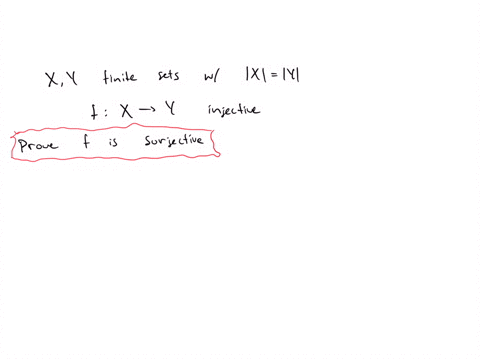 X, Y finite sets w/ |X| = |Y|
f : X → Y injective
Prove f is surjective